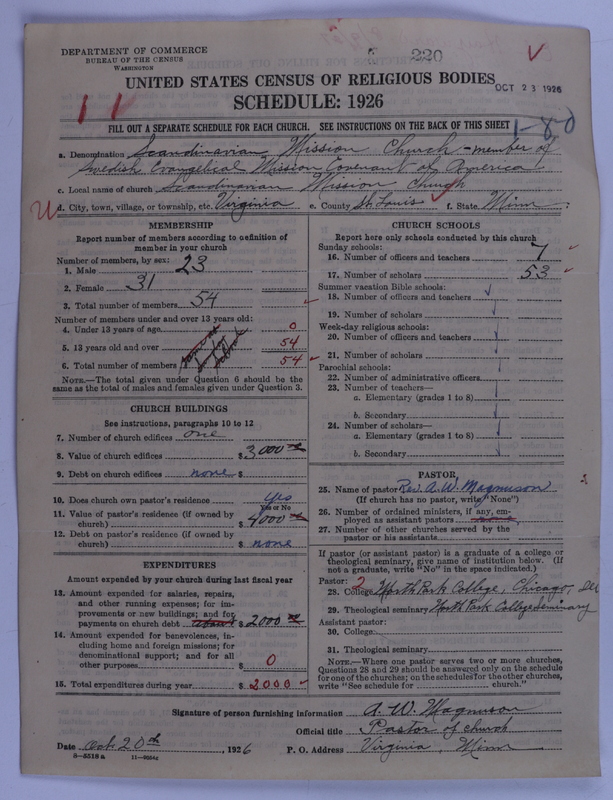 DEPARTMENT OF COMMERCE
BUREAU OF THE CENSUS
WASHINGTON
220
UNITED STATES CENSUS OF RELIGIOUS BODIES
OCT 23 1926
SCHEDULE: 1926
FILL OUT A SEPARATE SCHEDULE FOR EACH CHURCH. SEE INSTRUCTIONS ON THE BACK OF THIS SHEET
1-8-0
a. Denomination Scandinavian Mission Church - member of
Swedish Evangelical Mission Covenant of America
c. Local name of church Scandinavian Mission Church
d. City, town, village, or township, etc. Virginia e. County St. Louis f. State Minn
MEMBERSHIP
Report number of members according to definition of
member in your church
Number of members, by sex:
1. Male 23
2. Female 31
3. Total number of members 54
Number of members under and over 13 years old:
4. Under 13 years of age 0
5. 13 years old and over 54
6. Total number of members 54
NOTE.—The total given under Question 6 should be the
same as the total of males and females given under Question 3.
CHURCH BUILDINGS
See instructions, paragraphs 10 to 12
7. Number of church edifices one
8. Value of church edifices $ 3000
9. Debt on church edifices none $
10. Does church own pastor's residence yes
Yes or No
11. Value of pastor's residence (if owned by
church) $ 4000
12. Debt on pastor's residence (if owned by
church) $ none
EXPENDITURES
Amount expended by your church during last fiscal year
13. Amount expended for salaries, repairs,
and other running expenses; for im-
provements or new buildings; and for
payments on church debt $ 2000
14. Amount expended for benevolences, in-
cluding home and foreign missions; for
denominational support; and for all
other purposes $ 0
15. Total expenditures during year $ 2000
CHURCH SCHOOLS
Report here only schools conducted by this church
Sunday schools:
16. Number of officers and teachers 7
17. Number of scholars 53
Summer vacation Bible schools:
18. Number of officers and teachers
19. Number of scholars
Week-day religious schools:
20. Number of officers and teachers
21. Number of scholars
Parochial schools:
22. Number of administrative officers
23. Number of teachers—
a. Elementary (grades 1 to 8)
b. Secondary
24. Number of scholars—
a. Elementary (grades 1 to 8)
b. Secondary
PASTOR
25. Name of pastor Rev. A. W. Magnuson
(If church has no pastor, write "None")
26. Number of ordained ministers, if any, em-
ployed as assistant pastors none
27. Number of other churches served by the
pastor or his assistants
If pastor (or assistant pastor) is a graduate of a college or
theological seminary, give name of institution below. (If
not a graduate, write "No" in the space indicated.)
Pastor: 2
28. College North Park College, Chicago, Ill
29. Theological seminary North Park College Seminary
Assistant pastor:
30. College
31. Theological seminary
NOTE.—Where one pastor serves two or more churches,
Questions 28 and 29 should be answered only on the schedule
for one of the churches; on the schedules for the other churches,
write "See schedule for church."
Signature of person furnishing information A. W. Magnuson
Official title Pastor of church
Date Oct. 20th, 1926 P. O. Address Virginia, Minn
8-5518a 11-9024